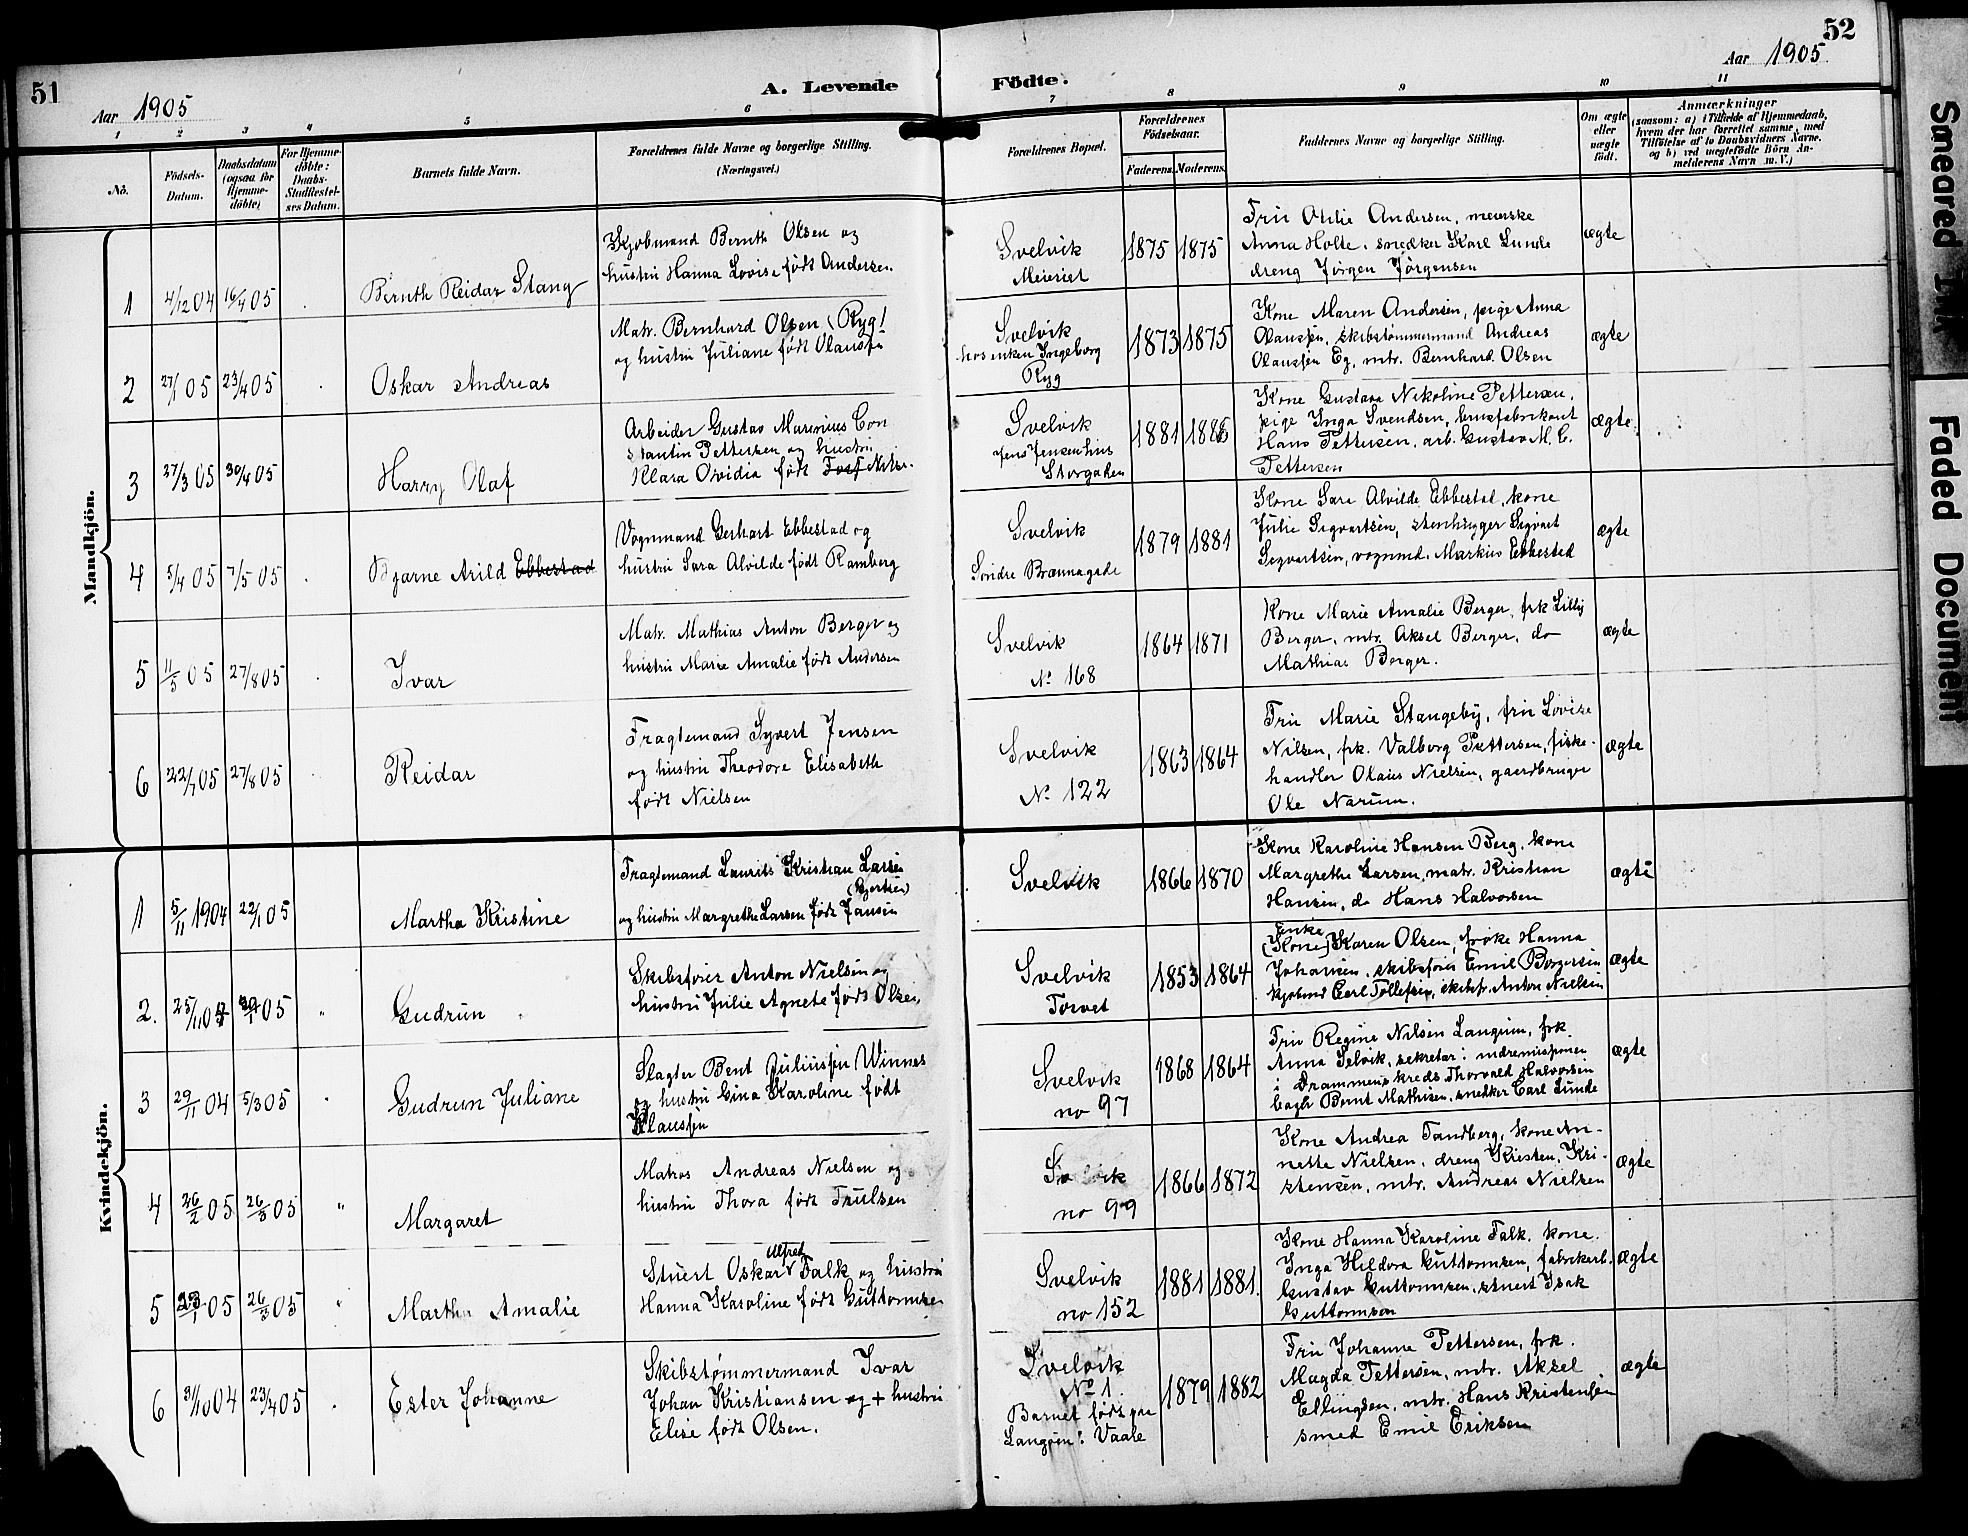 51
Aar 1905
A. Levende
Födte.
52
Aar 1905
1
2
3
4
5
6
7
8
9
10
11
No.
Födsels-
Datum.
Daabsdatum
(ogsaa for
Hjemme-
döbte)
For Hjemme-
döbte:
Daabs-
Stadfæstel-
ses Datum.
Barnets fulde Navn.
Forældrenes fulde Navne og borgerlige Stilling.
(Næringsvei.)
Forældrenes Bopæl.
Forældrenes
Födselsaar.
Faderens.
Moderens.
Faddernes Navne og borgerlige Stilling.
Om ægte
eller
uægte
födt.
Anmærkninger
(saasom: a) i Tilfælde af Hjemmedaab,
hvem der har forrettet samme, med
Tilföielse af to Daabsvidners Navne.
og b) ved uægtefödte Börn An-
melderens Navn m. V.)
Mandkjön.
1
4/12 04
16/4 05
Bernth Reidar Stang
Kjøbmand Bernth Olsen og
hustru Hanna Lovise født Andersen.
Svelvik
Meieriet
1875
1875
Fru Otilie Andersen, meierske
Anna Holte, snedker Karl Lunde
dreng Jørgen Jørgensen
ægte
2
27/1 05
23/4 05
Oskar Andreas
Matr. Bernhard Olsen (Ryg)
og hustru Juliane født Olaussen
Svelvik
hos enken Ingeborg
Ryg
1873
1875
Kone Maren Andersen, pige Anna
Olaussen, skibstømmermand Andreas
Olaussen Eg, mtr. Bernhard Olsen
ægte
3
27/3 05
30/4 05
Harry Olaf
Arbeider Gustav Marinius Con
stantin Pettersen og hustru
Klara Ovidia født
Svelvik
Jens Jensens hus
Storgaden
1881
Kone Gustava Nikoline Pettersen,
pige Inga Svendsen, brusfabrikant
Hans Pettersen, arb. Gustav M. C.
Pettersen
ægte.
4
5/4 05
7/5 05
Bjarne Arild Ebbestad
Vognmand Gerhart Ebbestad og
hustru Sara Alvilde født Ramberg
Svelvik
Søndre Brennagade
1879
1881
Kone Sara Alvilde Ebbestad, kone
Julie Sigvartsen, stenhugger Sigvart
Sigvartsen, vognmd. Markus Ebbestad
ægte
5
11/5 05
27/8 05
Ivar
Matr. Mathias Anton Berger og
hustru Marie Amalie født Andersen
Svelvik
No 168
1864
1871
Kone Marie Amalie Berger, frk Lilly
Berger, mtr. Aksel Berger, do
Mathias Berger.
ægte
6
22/7 05
27/8 05
Reidar
Fragtemand Syvert Jensen
og hustru Theodore Elisabeth
født Nielsen
Svelvik
No 122
1863
1864
Fru Marie Stangeby, fru Lovise
Nilsen, frk. Valborg Pettersen, fiske-
handler Olaus Nielsen, gaardbruger
Ole Narum.
ægte
Kvindekjön.
1
5/11 1904
22/1 05
Martha Kristine
Fragtemand Laurits Kristian Larsen
og hustru Margrethe Larsen født Jansen
Svelvik
1866
1870
Kone Karoline Hansen Berg, kone
Margrethe Larsen, matr. Kristian
Hansen, do Hans Halvorsen
ægte
2.
25/11 04
/1 05
"
Gudrun
Skibsfører Anton Nielsen og
hustru Julie Agnete født Olsen
Svelvik
Torvet
1853
1864
Enke
(Kone) Karen Olsen, frøke Hanna
Johansen, skibsfører Emil Borgersen
kjøbmd Carl Tollefsen, skibsf. Anton Nielsen
ægte
3
29/11 04
5/3 05
"
Gudrun Juliane
Slagter Bent Juliussen Winnes
og hustru Gina Karoline født
Klaussen
Svelvik
no 97
1868
1864
Fru Regine Nilsen Langum, frk.
Anna Selvik, sekretær i indremissionen
i Drammens kreds Thorvald Halvorsen
bager Bernt Mathisen, snedker Carl Lunde
ægte
4
26/2 05
26/3 05
"
Margaret
Matros Andreas Nielsen og
hustru Thora født Trulsen
Svelvik
no 99
1866
1872
Kone Andrea Tandberg, kone An-
nette Nielsen, dreng Kristen Kri-
stensen, mtr. Andreas Nielsen
ægte
5
/1 05
26/3 05
"
Martha Amalie
Alfred
Stuert Oskar Falk og hustru
Hanna Karoline født Guttormsen
Svelvik
no 152
1881
1881.
Kone Hanna Karoline Falk, kone
Inga Hildora Guttormsen, fabrikarb.
Gustav Guttormsen, stuert Isak
Guttormsen
ægte
6
31/10 04
23/4 05
Ester Johanne
Skibstømmermand Ivar
Johan Kristiansen og + hustru
Elise født Olsen.
Svelvik
No 1.
Barnet født paa
Langøen i Vaale
1879
1882
Fru Johanne Pettersen, frk.
Magda Pettersen, mtr. Aksel
Ellingsen, mtr. Hans Kristensen
smed Emil Eriksen
ægte
Smeared Ink
Faded Document